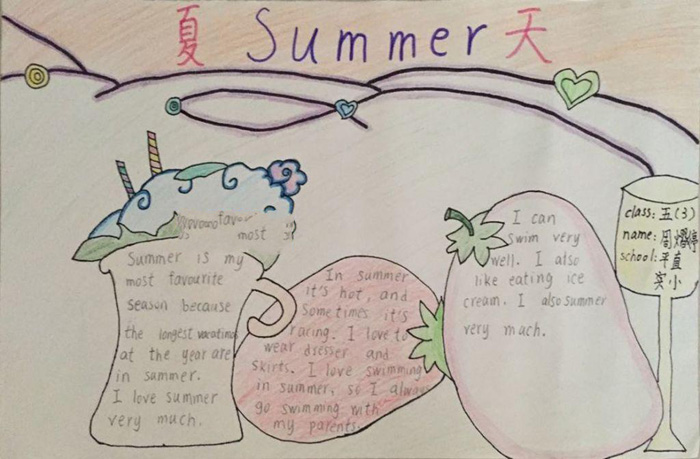 夏 Summer 天
most
Summer is my
most favourite
season because
the longest vacation
at the year are
in summer.
I love summer
very much.
In summer
it's hot, and
sometimes it's
racing. I love to
wear dresser and
skirts. I love swimming
in summer, so I always
go swimming with
my parents.
I can
swim very
well. I also
like eating ice
cream. I also summer
very mach.
class: 五(3)
name: 周
school: 平直
实小